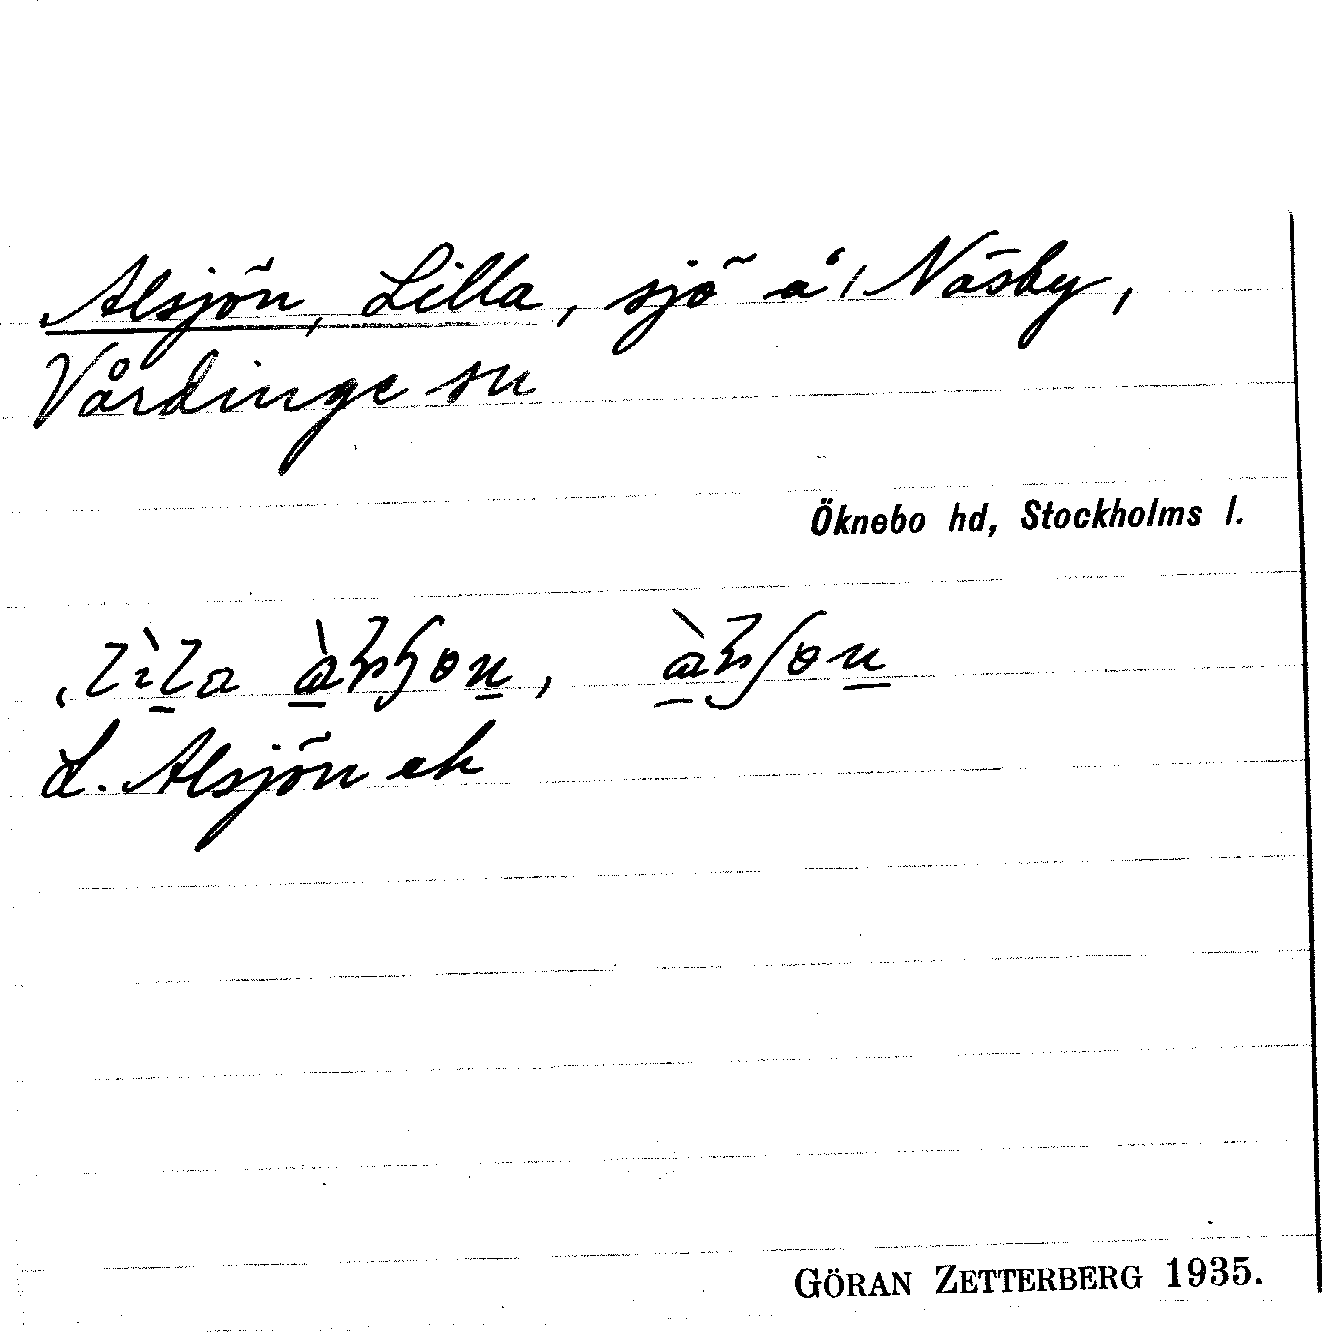 Alsjön, Lilla, sjö å Näsby,
Vårdinge sn
Öknebo hd, Stockholms l.
L. Alsjön ek
GÖRAN ZETTERBERG 1935.